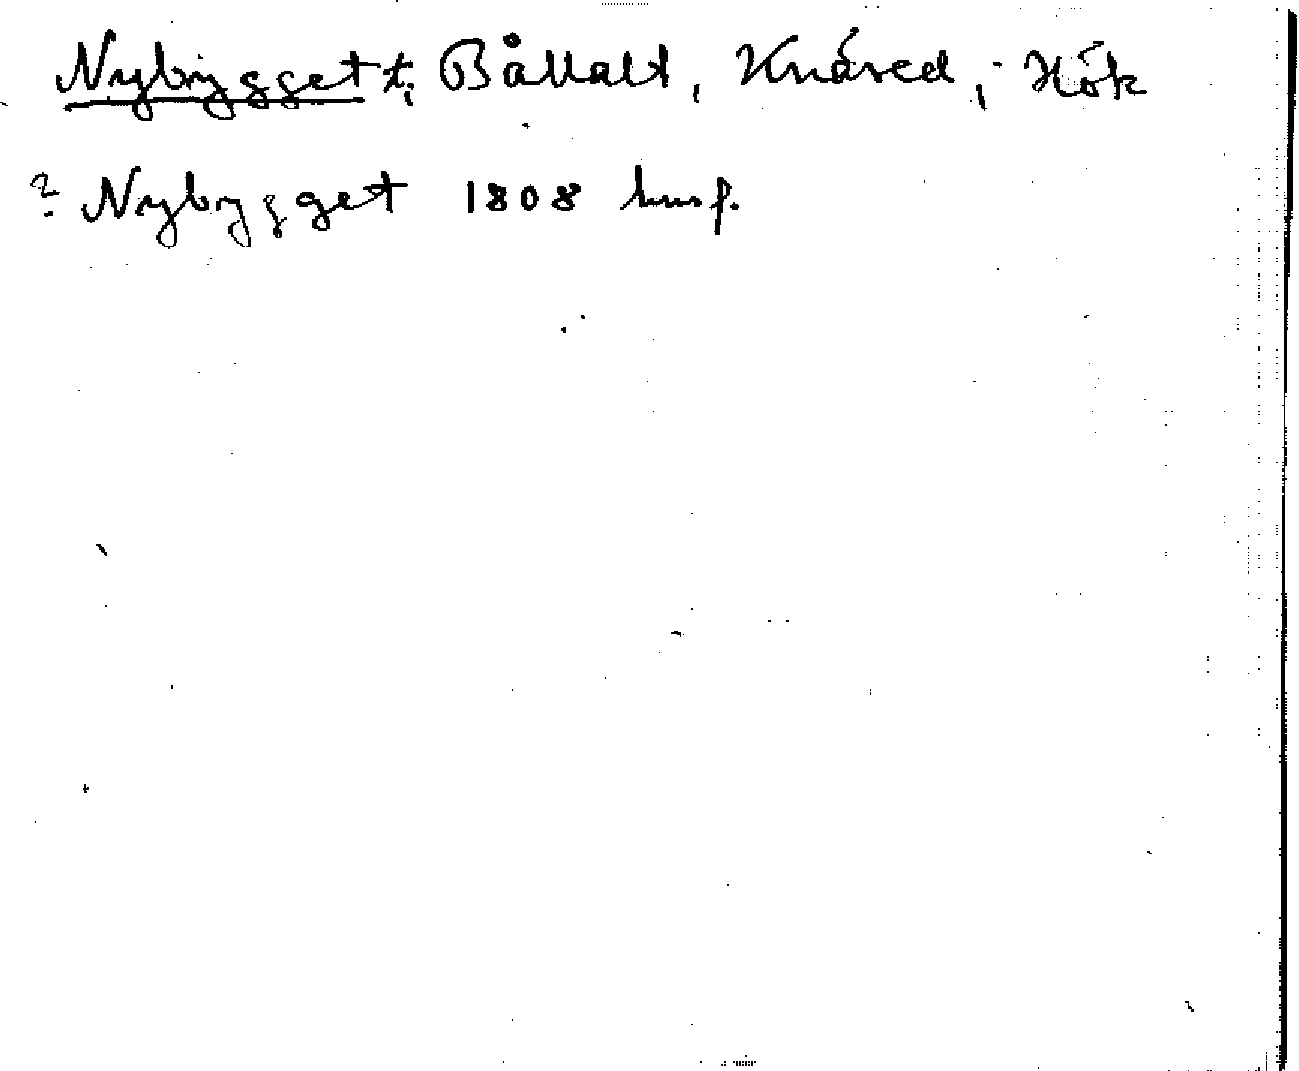 Nybygget t, Bållalt, Knäred, Hök
? Nybygget 1808 husf.